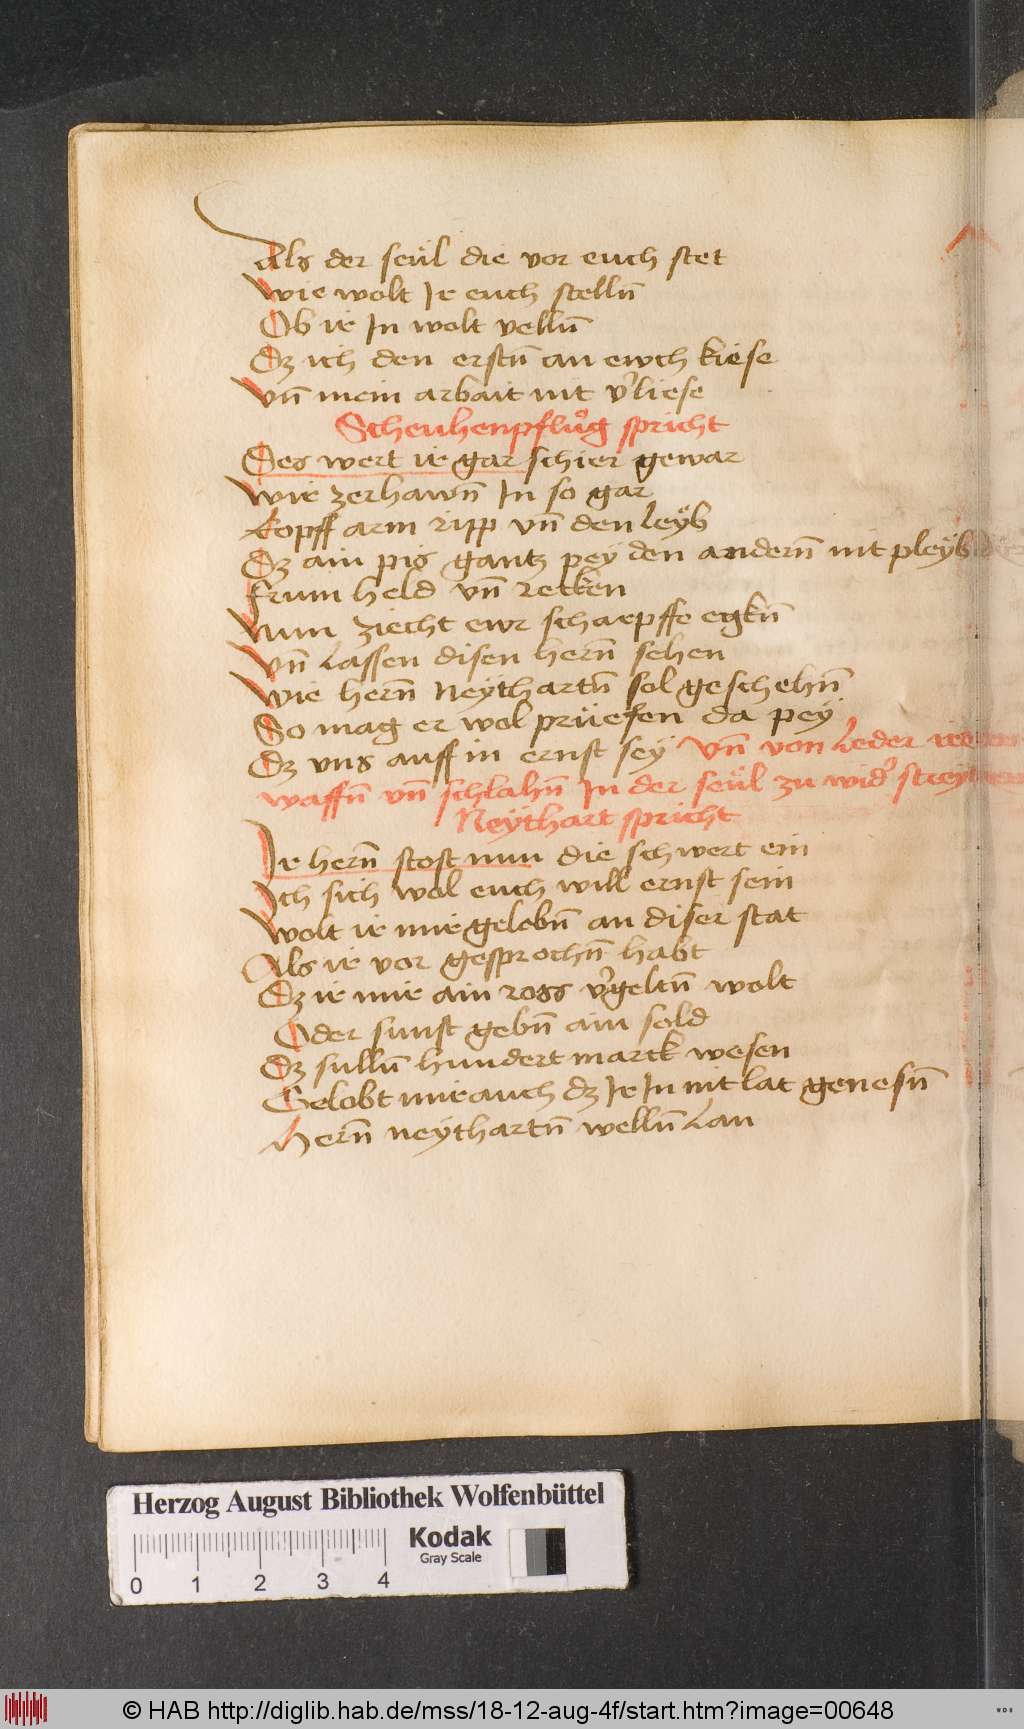 Als der seül die vor euch stet
Wie wolt Ir euch stelln̄
Ob ir In wolt velln̄
Dz ich den erstn̄ an ewch kiese
Vn̄ mein arbait nit v̉liese
Scheuhenpflůg spricht
Des wert ir gar schier gewar
Wir zerhawn̄ In so gar
Kopff arm ripp vn̄ den leÿb
Dz ain pis gantz peÿ den andern̄ nit pleÿb
Frum held vn̄ recken
Nun ziecht ewr scharpffe egkn̄
Vn̄ lassen disen hern̄ sehen
Wie hern̄ Neÿthartn̄ sol geschehn̄
So mag er wol prüefen da peÿ
Dz vns auff in ernst seÿ Vn̄ von leder
waffn̄ vn̄ schlahn̄ In der seül zu wid̉
Neÿthart spricht
Ir hern̄ stost nun die schwert ein
Ich sich wol euch will ernst sein
Wolt ir mir gelobn̄ an diser stat
Als ir vor gesprochn̄ habt
Dz ir mir ain ross v̉geltn̄ wolt
Oder sunst gebn̄ ain sold
Dz sulln̄ hundert marck wesen
Gelobt mir auch dz Ir In nit lat genesn̄
Hern̄ neÿthartn̄ welln̄ lan
Herzog August Bibliothek Wolfenbüttel
Kodak
Gray Scale
0 1 2 3 4
© HAB http://diglib.hab.de/mss/18-12-aug-4f/start.htm?image=00648